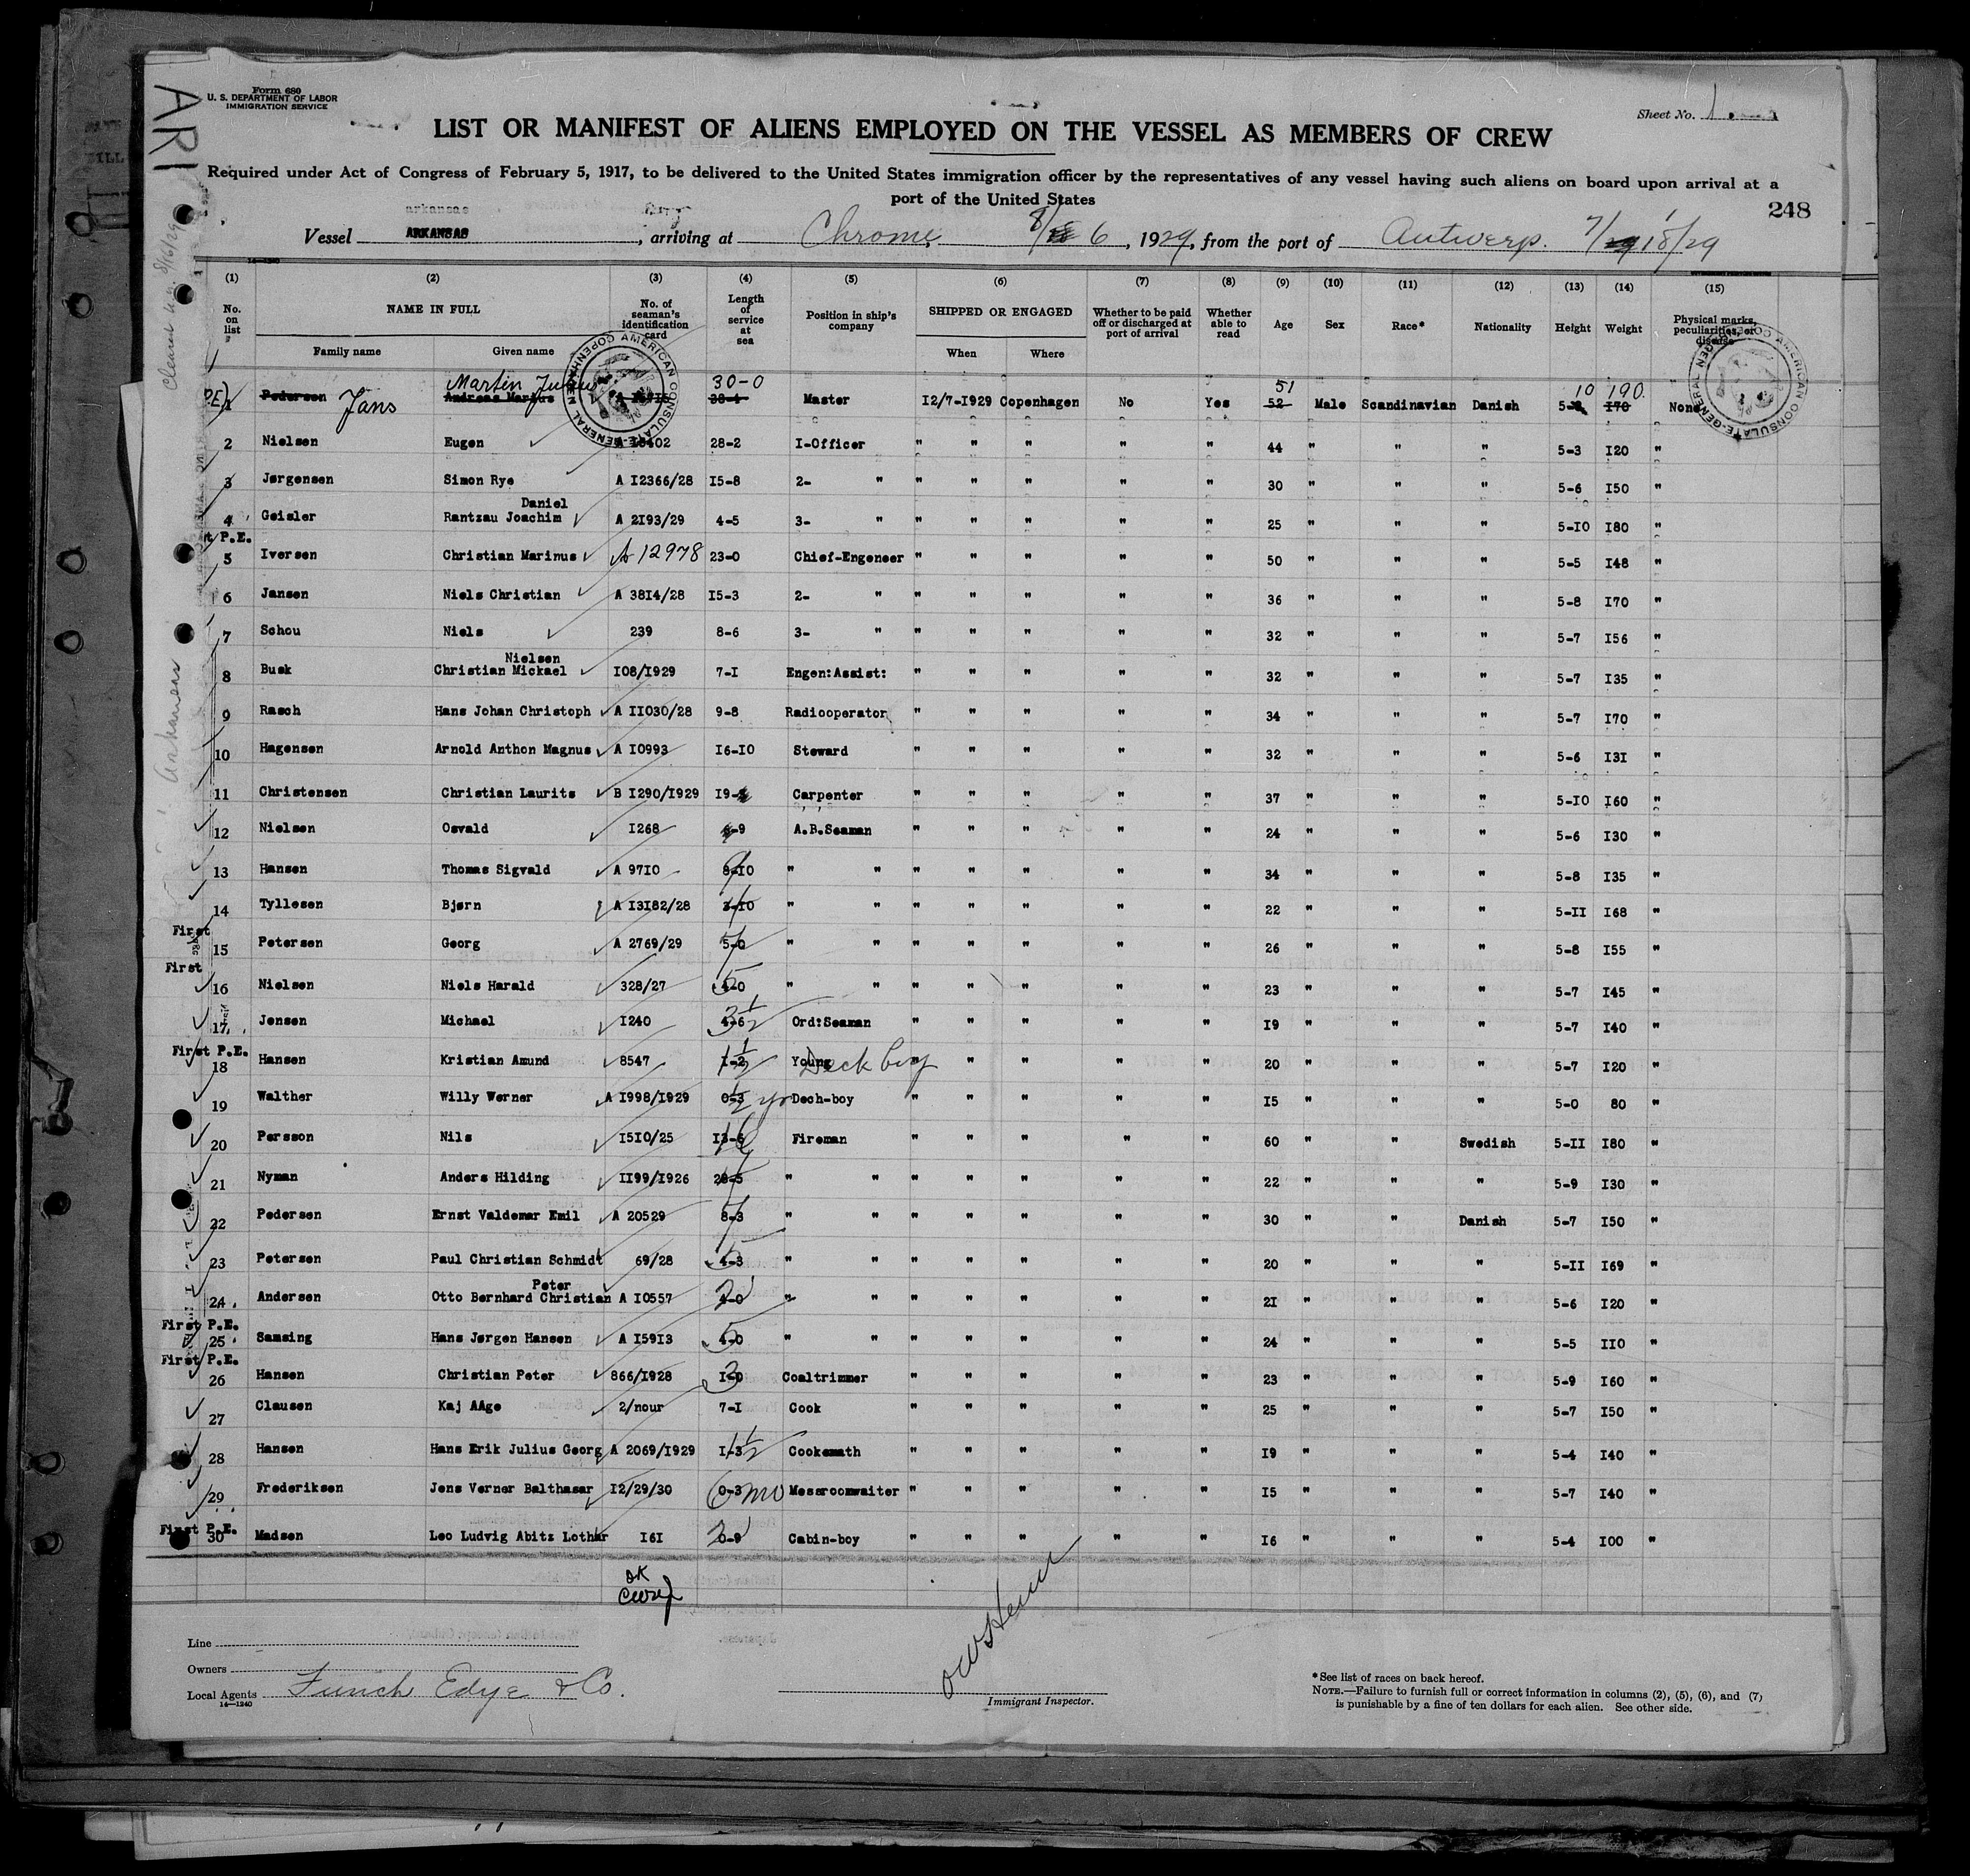 ARI
Form 680
U. S. DEPARTMENT OF LABOR
IMMIGRATION SERVICE
Sheet No. 1
LIST OR MANIFEST OF ALIENS EMPLOYED ON THE VESSEL AS MEMBERS OF CREW
Required under Act of Congress of February 5, 1917, to be delivered to the United States immigration officer by the representatives of any vessel having such aliens on board upon arrival at a
port of the United States
248
arkansas
Vessel ARKANSAS, arriving at Chrome, 8/6, 1929, from the port of Antwerp. 7/18/29
14—1240
(1) (2) (3) (4) (5) (6) (7) (8) (9) (10) (11) (12) (13) (14) (15)
No. on list NAME IN FULL No. of seaman's identification card Length of service at sea Position in ship's company SHIPPED OR ENGAGED Whether to be paid off or discharged at port of arrival Whether able to read Age Sex Race* Nationality Height Weight Physical marks, peculiarities, or disease
Family name Given name When Where
AMERICAN CONSULATE-GENERAL COPENHAGEN
AMERICAN CONSULATE-GENERAL COPENHAGEN
Martin Julius 30-0 51 10 190.
1 Pedersen Jans Andreas Marius Master 12/7-1929 Copenhagen No Yes 52 Male Scandinavian Danish 5- 170 None
2 Nielsen Eugen 28-2 I-Officer " " " " " 44 " " " 5-3 120 "
3 Jørgensen Simon Rye A 12366/28 15-8 2- " " " " " " 30 " " " 5-6 150 "
Daniel
4 Geisler Rantzau Joachim A 2193/29 4-5 3- " " " " " " 25 " " " 5-10 180 "
t P.E.
5 Iversen Christian Marinus A 12978 23-0 Chief-Engeneer " " " " " 50 " " " 5-5 148 "
6 Jansen Niels Christian A 3814/28 15-3 2- " " " " " " 36 " " " 5-8 170 "
7 Schou Niels 239 8-6 3- " " " " " " 32 " " " 5-7 156 "
Nielsen
8 Busk Christian Mickael 108/1929 7-1 Engen:Assist: " " " " " 32 " " " 5-7 135 "
9 Rasch Hans Johan Christoph A 11030/28 9-8 Radiooperator " " " " " 34 " " " 5-7 170 "
10 Hagensen Arnold Anthon Magnus A 10993 16-10 Steward " " " " " 32 " " " 5-6 131 "
11 Christensen Christian Laurits B 1290/1929 19- Carpenter " " " " " 37 " " " 5-10 160 "
12 Nielsen Osvald 1268 -9 A.B.Seaman " " " " " 24 " " " 5-6 130 "
13 Hansen Thomas Sigvald A 9710 8-10 9 " " " " " " " 34 " " " 5-8 135 "
14 Tyllesen Bjørn A 13182/28 3-10 " " " " " " " 22 " " " 5-11 168 "
First
15 Petersen Georg A 2769/29 5-0 7 " " " " " " " 26 " " " 5-8 155 "
First
16 Nielsen Niels Harald 328/27 4-0 5 " " " " " " " 23 " " " 5-7 145 "
17 Jensen Michael 1240 4-6 3½ Ord:Seaman " " " " " 19 " " " 5-7 140 "
First P.E.
18 Hansen Kristian Amund 8547 1-2 1½ Young Deck boy " " " " " 20 " " " 5-7 120 "
19 Walther Willy Werner A 1998/1929 0-3 ½ yr Dech-boy " " " " " 15 " " " 5-0 80 "
20 Persson Nils 1510/25 13-6 Fireman " " " " " 60 " " Swedish 5-11 180 "
21 Nyman Anders Hilding 1199/1926 " " " " " " " 22 " " " 5-9 130 "
22 Pedersen Ernst Valdemar Emil A 20529 8-3 7 " " " " " " " 30 " " Danish 5-7 150 "
23 Petersen Paul Christian Schmidt 69/28 4-3 5 " " " " " " " 20 " " " 5-11 169 "
Peter
24 Andersen Otto Bernhard Christian A 10557 4-0 2 " " " " " " " 21 " " " 5-6 120 "
First P.E.
25 Samsing Hans Jørgen Hansen A 15913 4-0 5 " " " " " " " 24 " " " 5-5 110 "
First P.E.
26 Hansen Christian Peter 866/1928 1-0 3 Coaltrimmer " " " " " 23 " " " 5-9 160 "
27 Clausen Kaj AAge 2/nour 7-1 Cook " " " " " 25 " " " 5-7 150 "
28 Hansen Hans Erik Julius Georg A 2069/1929 1-3 1½ Cooksmath " " " " " 19 " " " 5-4 140 "
29 Frederiksen Jens Verner Balthasar 12/29/30 0-3 6 mo Messroomwaiter " " " " " 15 " " " 5-7 140 "
First P.E.
30 Madsen Leo Ludvig Abitz Lothar 161 0-9 2 Cabin-boy " " " " " 16 " " " 5-4 100 "
OK
Line
Owners
Local Agents Funch Edye & Co.
14—1240
Immigrant Inspector.
*See list of races on back hereof.
NOTE.—Failure to furnish full or correct information in columns (2), (5), (6), and (7)
is punishable by a fine of ten dollars for each alien. See other side.